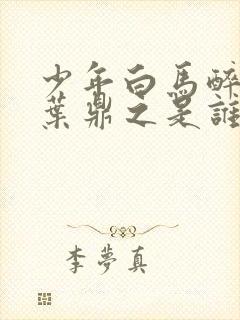 少年白馬醉
葉鼎之是誰
李夢真